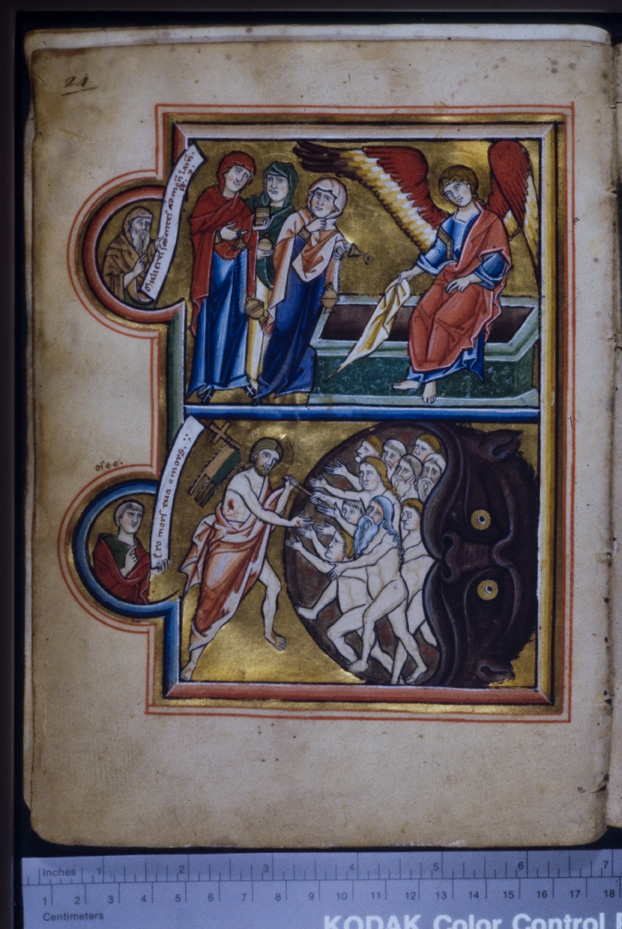 21
Mulieres
osee.
Ero mors tua o mors.
Inches 1 2 3 4 5 6 7
1 2 3 4 5 6 7 8 9 10 11 12 13 14 15 16 17 18
Centimeters
KODAK Color Control